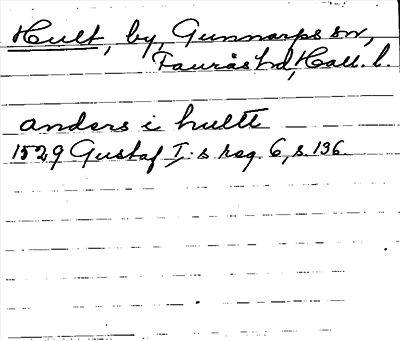 Hult, by, Gunnarps sn,
Faurås hd, Hall. l.
anders i hultt
1529 Gustaf I:s reg. 6, s. 136.